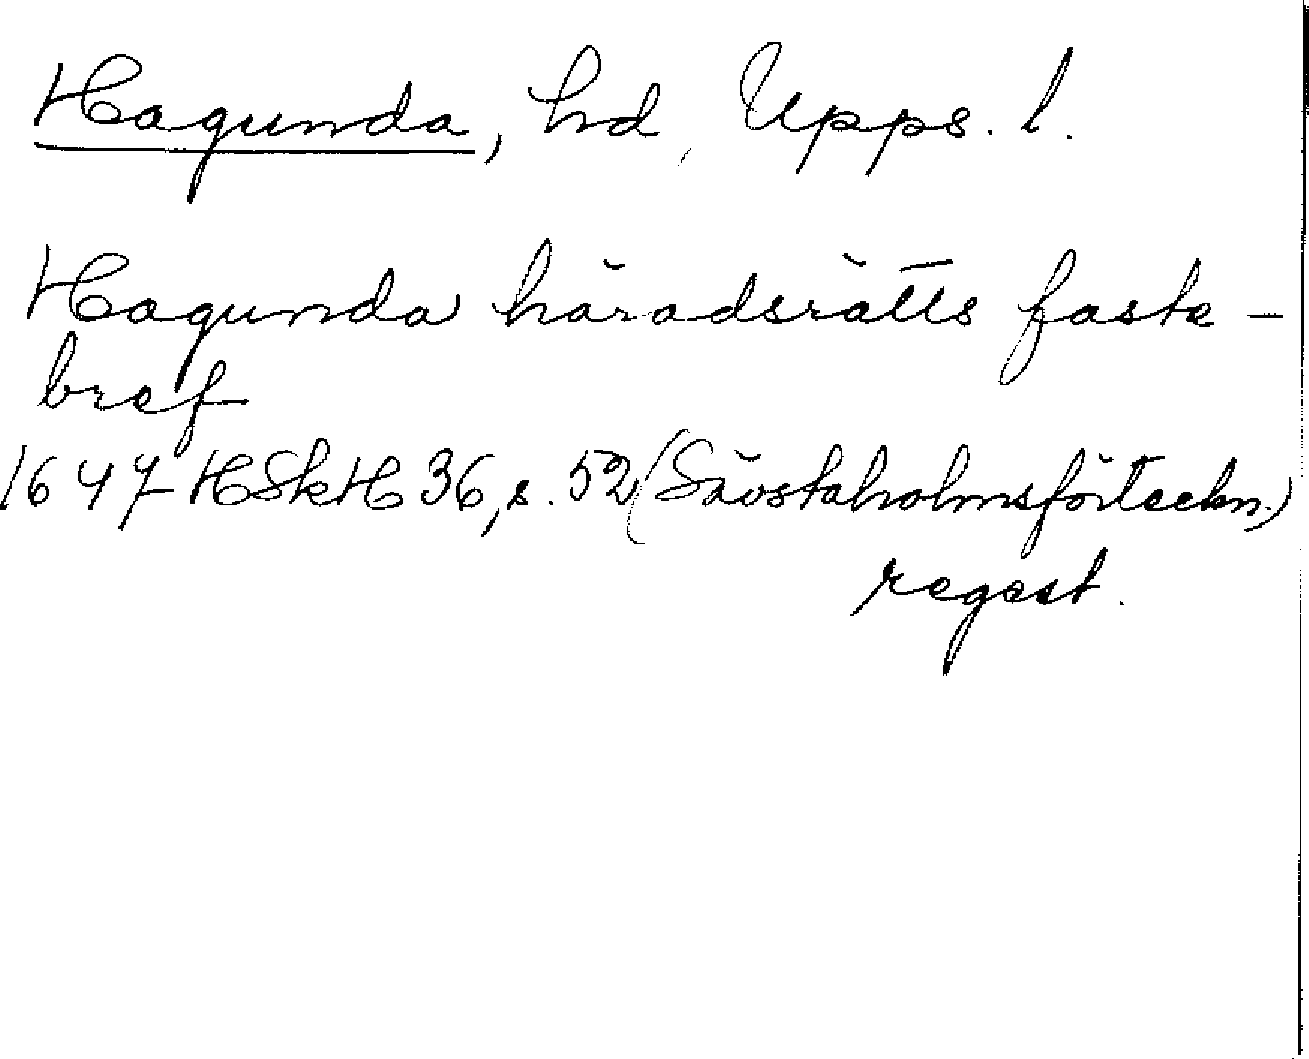 Hagunda, hd, Upps. l.
Hagunda häradsrätts faste-
bref
1647 HSkH 36, s. 52 (Sävstaholmsförteckn.)
regest.